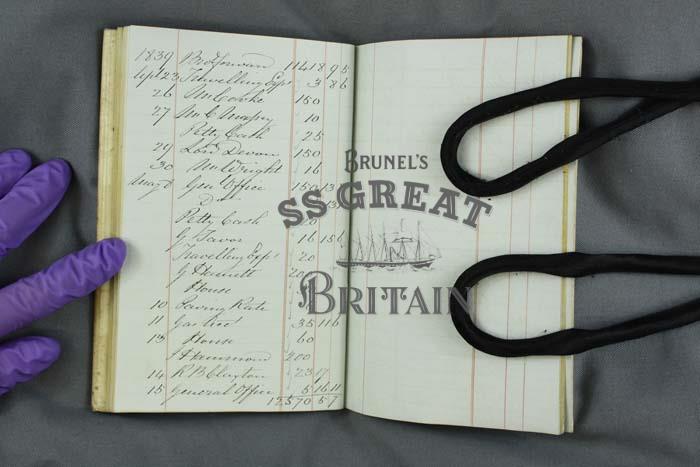 1839 Bt forward 11418 9 5
Apl 23 Travelling Exps 3 8 6
26 Mr Cooke 150
27 10
Petty Cash 25
29 Lord Devon 150
30 Mr Wright 16
May 8 Gen Office 150 13
Do
Petty Cash
G 16 15 6
Travelling Exps 20
G Hennett 20
House
10 Paving Rate
11 35 11 6
13 House 60
J Hammond 200
14 R B Clayton 23 17
15 General Office 5 16 11
12570 5 7
BRUNEL'S
SS GREAT
BRITAIN